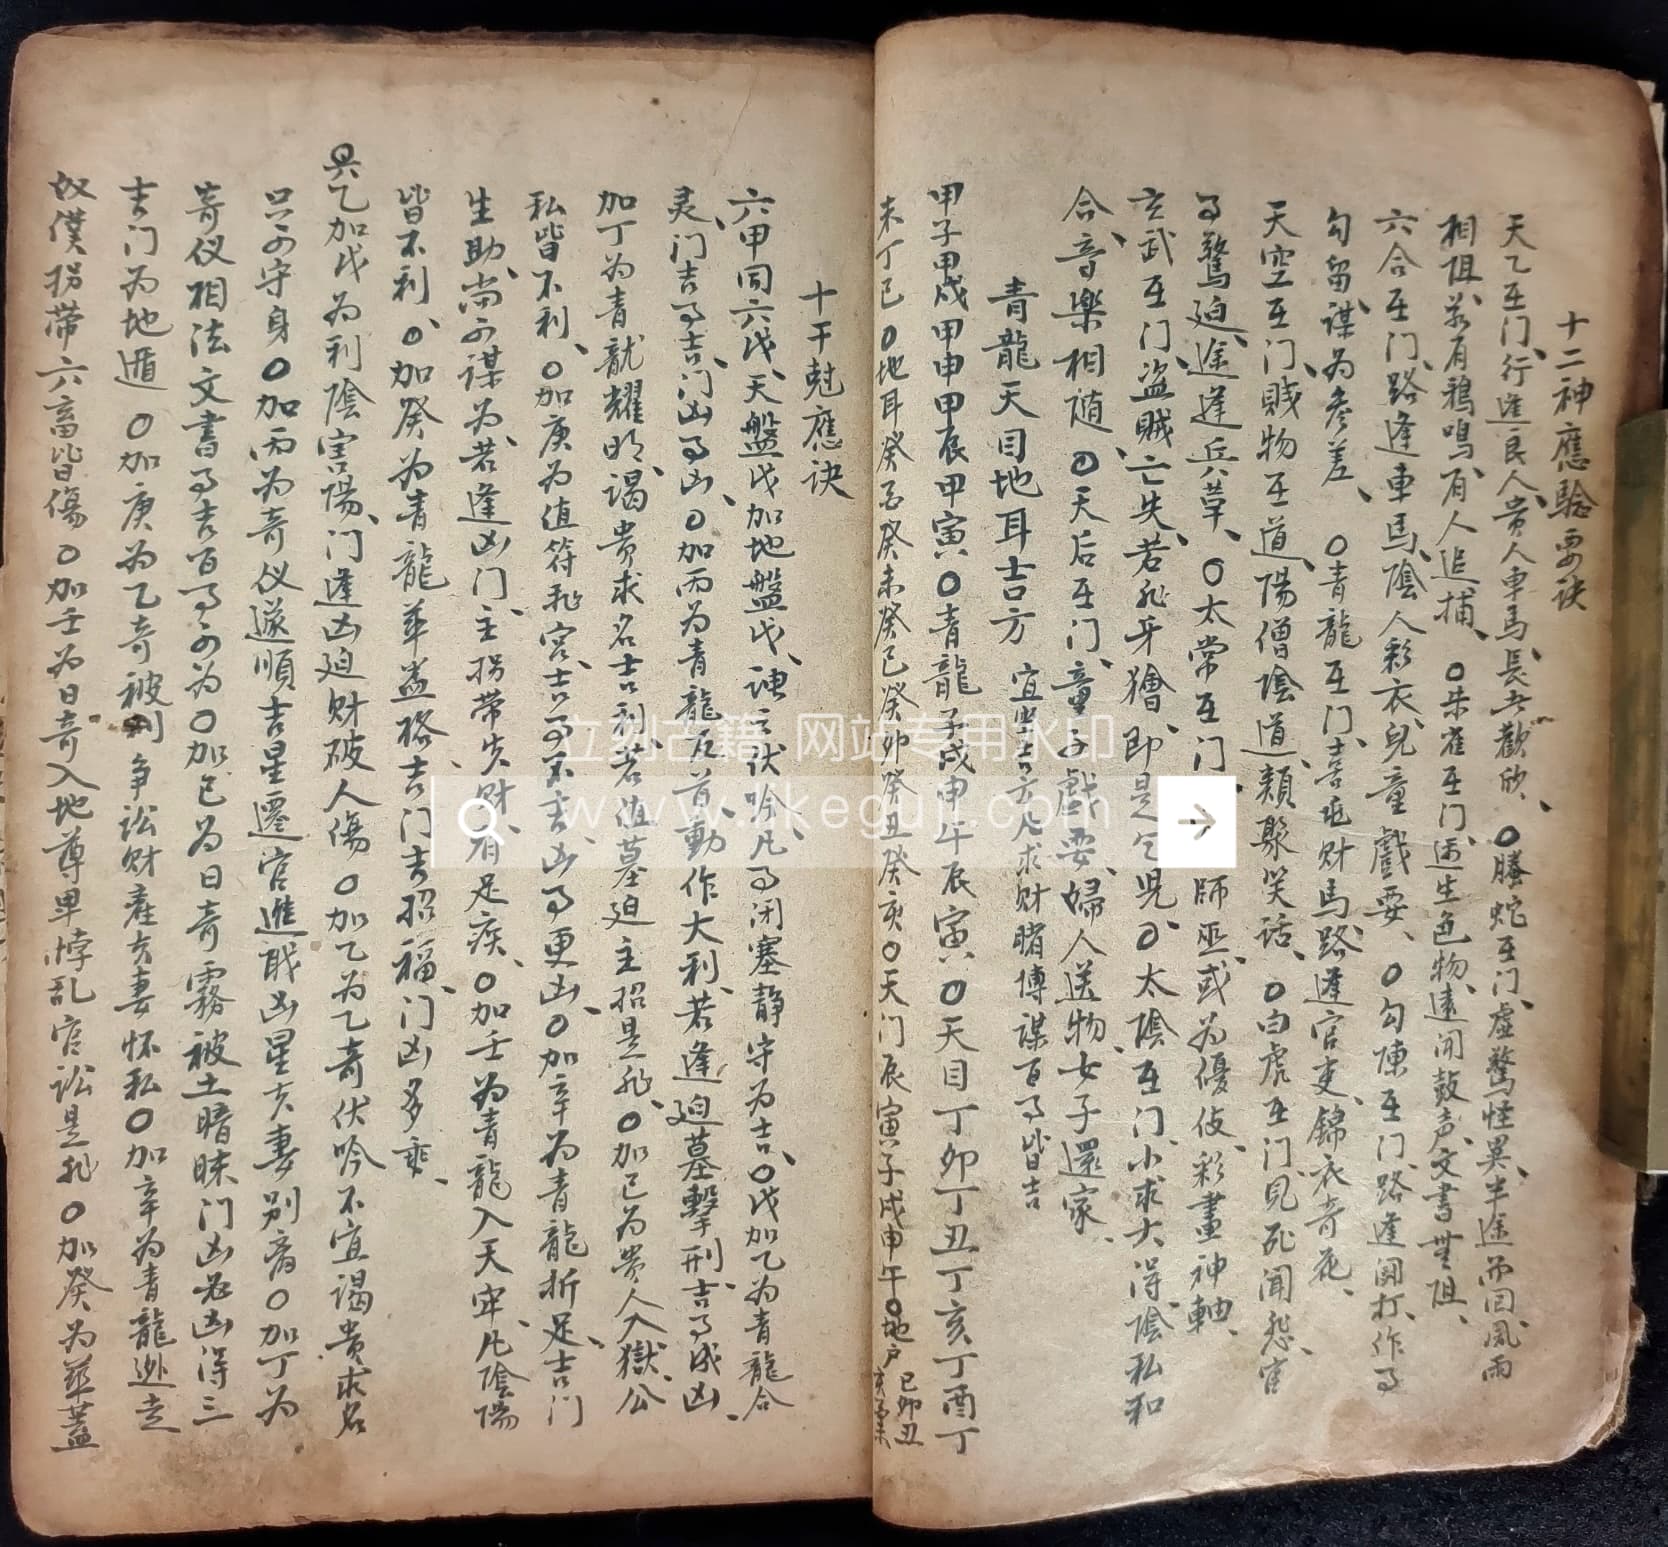 十二神應驗要诀
天乙在门行逢良人、贵人車馬、長者歡欣、〇螣蛇在门、虛驚怪異、半途而回、風雨
相阻、若有鴉鳴、有人追捕、〇朱雀在门、送生色物、遠闻鼓声、文書無阻、
六合在门、路逢車馬、陰人彩衣、兒童戲耍、〇勾陳在门、路逢闘打、作事
勾留、謀为參差、〇青龍在门、喜忻财馬、路逢官吏、錦衣奇花、
天空在门、賤物在道、陽僧陰道、類聚笑话、〇白虎在门、見死聞怨、官
事驚迫、途逢兵革、〇太常在门、師巫、或为優伎、彩畫神軸、
玄武在门、盗贼亡失、若非牙獪、即是乞児、〇太陰在门、小求大得、陰私和
合、音樂相随、〇天后在门、童子戲耍、婦人送物、女子還家、
青龍天目地耳吉方 宜坐吉方凡求财睹博謀百事皆吉
甲子甲戍甲申甲甲辰甲寅〇青龍子戍申午辰寅〇天目丁卯丁丑丁亥丁酉丁
未丁巳〇地耳癸酉癸未癸巳癸卯癸丑癸亥〇天门辰寅子戍申午〇地户巳卯丑亥酉未
十干尅應诀
六甲同六戊、天盤戊加地盤戊、谏之伏吟、凡事闭塞静守为吉、〇戊加乙为青龍合
灵、门吉事吉、门凶事凶、〇加丙为青龍返首、動作大利、若逢迫墓擊刑、吉事成凶、
加丁为青龍耀明、谒贵求名吉利、若值墓迫、主招是非、〇加己为贵人入獄、公
私皆不利、〇加庚为值符飛宫、吉事不吉、凶事更凶、〇加辛为青龍折足、吉门
生助、尚可謀为、若逢凶门、主拐带失财、有足疾、〇加壬为青龍入天牢、凡陰陽
皆不利、〇加癸为青龍華盖格、吉门吉招福、门凶多乖、
㒷乙加戊为利陰害陽、门逢凶迫财破人傷〇加乙为乙奇伏吟不宜谒贵求名
只可守身〇加丙为奇仪遂順吉星遷官進职凶星夫妻别离〇加丁为
奇仪相法文書事吉百事可为〇加己为日奇霧被土暗昧门凶必凶得三
吉门为地遁〇加庚为乙奇被刑争讼财産夫妻怀私〇加辛为青龍逃走
奴僕拐带六畜皆傷〇加壬为日奇入地尊卑悖乱官讼是非〇加癸为華蓋
立刻古籍 网站专用水印